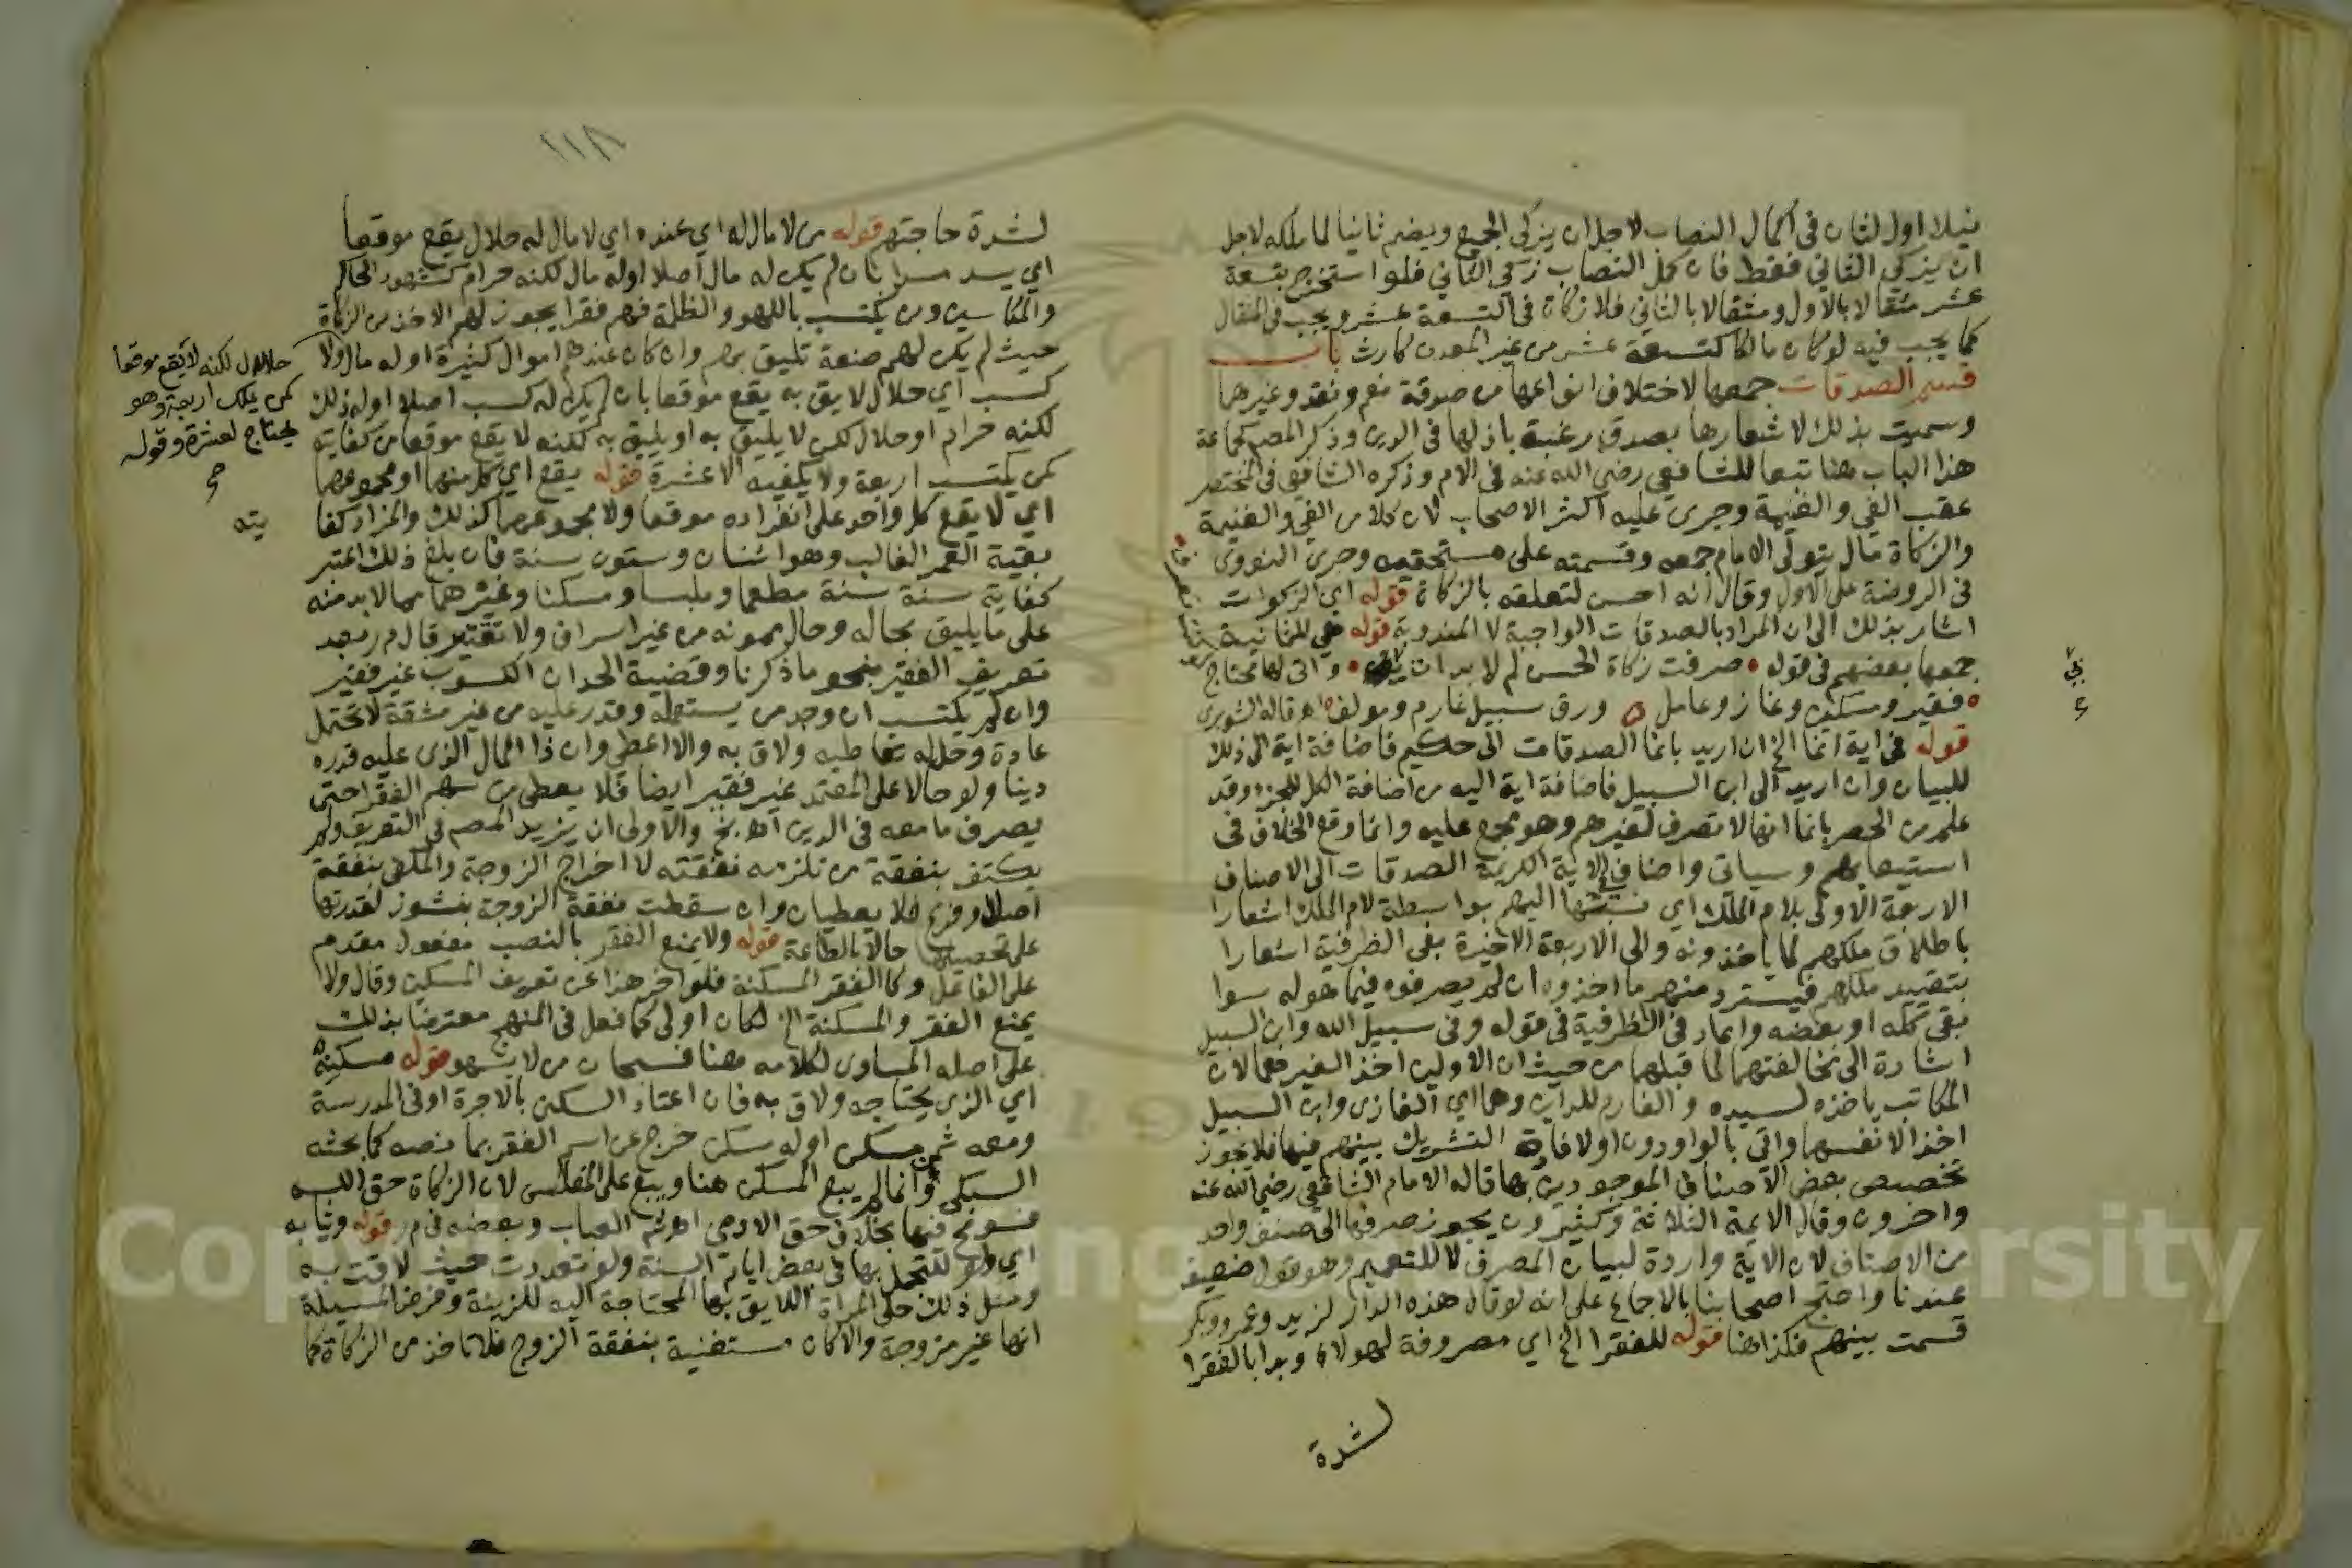 فيلا اول لثان في اكمال النصاب لاجل ان يزكي الجميع ويضم ثانيا لما ملكه لاجل
ان يزكي الثاني فقط فان كمل النصاب زكي الثاني فلو استخرج بتسعة
عشر مثقالا بالاول ومثقالا بالثاني فلا زكاة في التسعة عشر ويجب في المثقال
كما يجب فيه لو كان مالكا لتسعة عشر من غير المعدن كارث باب
قسم الصدقات جمعها لاختلاف انواعها من صدقة نعم ونقد وغيرهما
وسميت بذلك لاشعارها بصدق رغبة باذلها في الدين وذكر المصم كجماعة
هذا الباب هنا تبعا للشافعي رضي الله عنه في الام وذكره الشافعي في المختصر
عقب الفي والغنيمة وجرى عليه اكثر الاصحاب لان كلا من الفي والغنيمة
والزكاة مال يتولى الامام جمعه وقسمته على مستحقيه وجرى النووي
في الروضة على الاول وقال انه احسن لتعلقه بالزكاة قوله اي الزكوات
اشار بذلك الى ان المراد بالصدقات الواجبة لا المندوبة قوله هي للثمانية
جمعها بعضهم في قوله صرفت زكاة الحسن لم لا بدات واني لها محتاج
فقير ومسكين وغاز وعامل ورق سبيل غارم ومولف اهـ قاله الشوبري
قوله في اية انما الخ ان اريد بانما الصدقات الى حكيم فاضافة اية الى ذلك
للبيان وان اريد الى ابن السبيل فاضافة اية اليه من اضافة الكل للجزء وقد
علم من الحصر بانما انها لا تصرف لغيرهم وهو مجمع عليه وانما وقع الخلاف في
استيعابهم وسياتي واضاف في الاية الكريمة الصدقات الى الاصناف
الاربعة الاولى بلام الملك اي اليهم بواسطة لام الملك اشعارا
باطلاق ملكهم لما ياخذونه والى الاربعة الاخيرة بفي الظرفية اشعارا
بتقييد ملكهم فيسترد منهم ما اخذوه ان لم يصرفوه فيما هو له سوا
بقي كله او بعضه واعاد في الظرفية في قوله وفي سبيل الله وابن السبيل
اشارة الى مخالفتهما لما قبلهما من حيث ان الاولين اخذا لغيرهما لان
المكاتب ياخذه لسيده والغارم للداين وهما اي الغازي وابن السبيل
اخذا لانفسهما واتى بالواو دون او لافادة التشريك بينهم فيها فلا يجوز
تخصيص بعض الاصناف الموجودين بها قاله الامام الشافعي رضي الله عنه
واخرون وقال الايمة الثلاثة وكثيرون يجوز صرفها الى صنف واحد
من الاصناف لان الاية واردة لبيان المصرف لا للتعميم وهو قول ضعيف
عندنا واحتج اصحابنا بالاجماع على انه لو قال هذه الدار لزيد وعمرو وبكر
قسمت بينهم فكذا هنا قوله للفقرا الخ اي مصروفة لهولاء وبدا بالفقرا
لشدة
١١٨
لشدة حاجتهم قوله من لا مال له اي عنده اي لا مال له حلال يقع موقعا
اي يسد مسدا بان لم يكن له مال اصلا او له مال لكنه حرام كشهود المحاكم
والمكاسين ومن يكتسب باللهو والظلمة فهم فقرا يجوز لهم الاخذ من الزكاة
حيث لم يكن لهم صنعة تليق بهم وان كان عندهم اموال كثيرة او له مال ولا
كسب اي حلال لايق به يقع موقعا بان لم يكن له كسب اصلا او له ذلك
لكنه حرام او حلال لكن لا يليق به او يليق به لكنه لا يقع موقعا من كفايته
كمن يكتسب اربعة ولا يكفيه الا عشرة قوله يقع اي كل منهما او مجموعهما
اي لا يقع كل واحد على انفراده موقعا ولا مجموعهما كذلك والمراد كفا
بقية العمر الغالب وهو اثنان وستون سنة فان بلغ ذلك اعتبر
كفاية سنة سنة مطعما وملبسا ومسكنا وغيرهما مما لا بد منه
على ما يليق بحاله وحال ممونه من غير اسراف ولا تقتير قال م ر بعد
تعريف الفقير بنحو ما ذكرنا وقضية الحد ان الكسوب غير فقير
وان لم يكتسب ان وجد من يستعمله وقدر عليه من غير مشقة لا تحتمل
عادة وحل له تعاطيه ولاق به والا اعطي وان ذا المال الذي عليه قدره
دينا ولو حالا على المعتمد غير فقير ايضا فلا يعطى من سهم الفقرا حتى
يصرف ما معه في الدين اهـ والاولى ان يزيد المصم في التعريف ولم
يكتف بنفقة من تلزمه نفقته لاخراج الزوجة والمكفي بنفقة
اصل او فرع فلا يعطيان وان سقطت نفقة الزوجة بنشوز لقدرتها
على تحصيلها حالا بالطاعة قوله ولا يمنع الفقر بالنصب مفعول مقدم
على الفاعل وكالفقر المسكنة فلو اخر هذا عن تعريف المسكين وقال ولا
يمنع الفقر والمسكنة الخ لكان اولى كما فعل في المنهج معترضا بذلك
على اصله المساوي لكلامه هنا فسبحان من لا يسهو قوله مسكنه
اي الذي يحتاجه ولاق به فان اعتاد السكن بالاجرة او في المدرسة
ومعه ثمن مسكن او له مسكن خرج عن اسم الفقر بما معه كما بحثه
السبكي وانما لم يبع المسكن هنا ويبع على المفلس لان الزكاة حق الله
فسومح فيها بخلاف حق الادمي اهـ شرح العباب وبعضه في م ر قوله وثيابه
اي ولو للتجمل بها في بعض ايام السنة ولو تعددت حيث لاقت به
ومثل ذلك حلي المراة اللايق بها المحتاجة اليه للزينة وفرض المسيلة
انها غير متزوجة والا كان مستغنية بنفقة الزوج فلا تاخذ من الزكاة كما
حلال لكنه لا يقع موقعا
كمن يملك اربعة وهو
يحتاج لعشرة وقوله
صح
يته